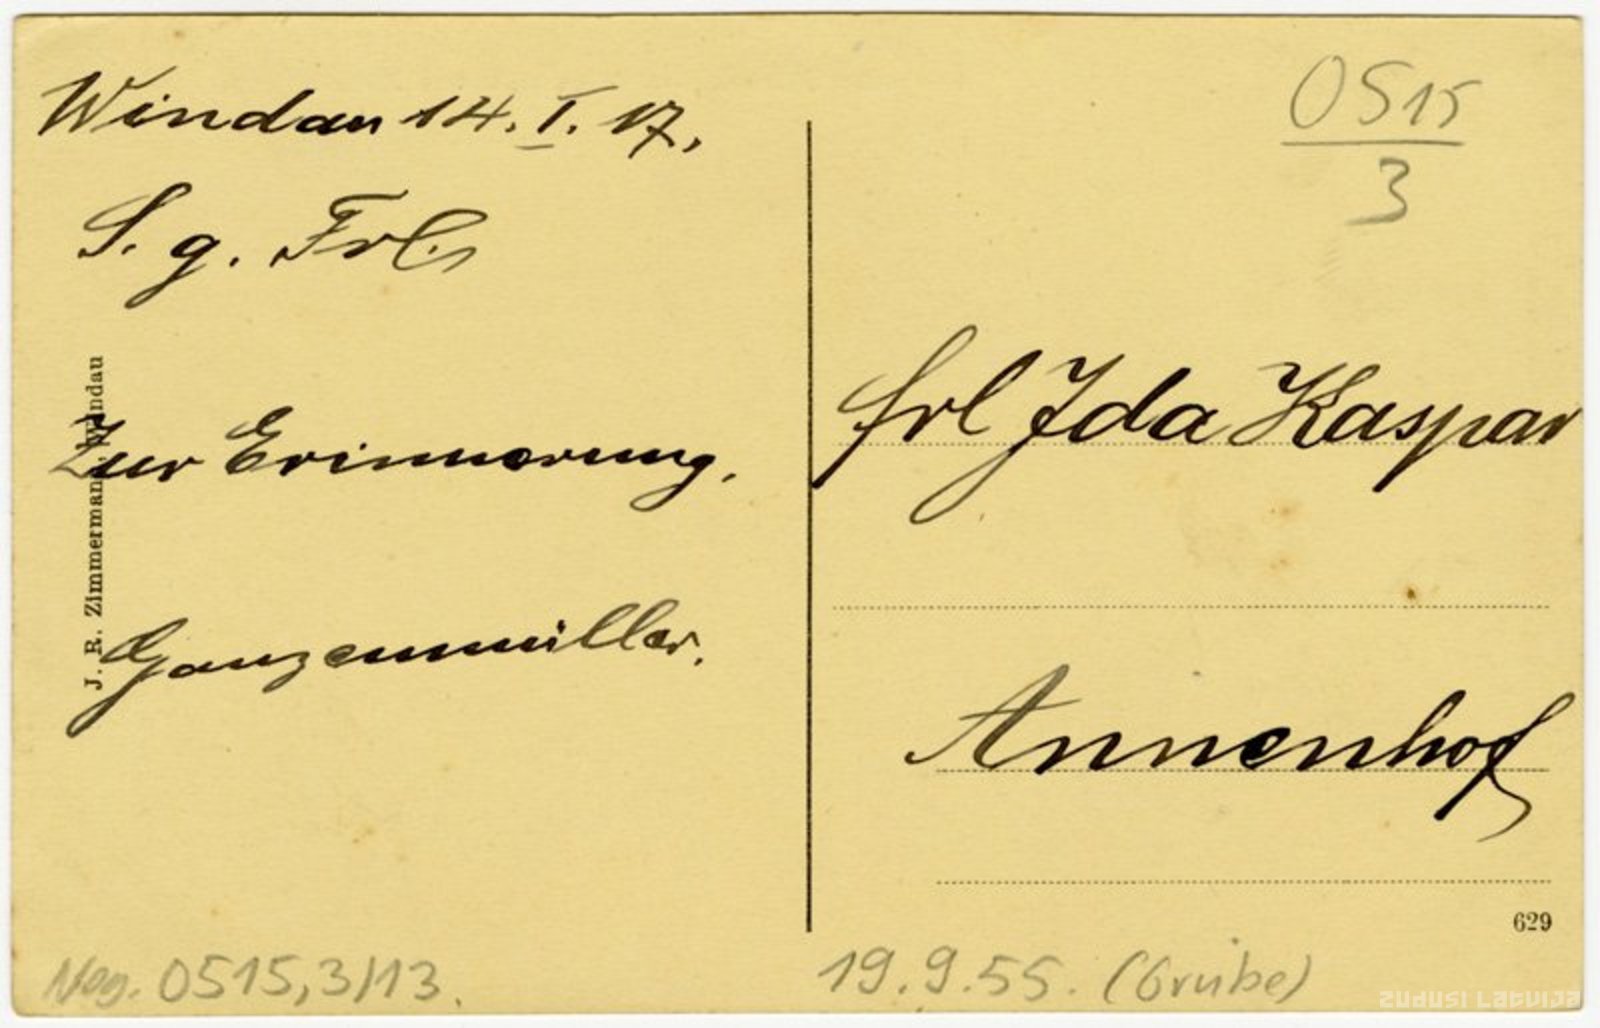 Windau 14. I. 17.
S. g. Frl.
Zur Erinnerung.
Ganzenmüller.
J. R. Zimmermann, Windau
0515
3
Frl Ida Kaspar
Annenhof
629
Neg. 0515,3/13.
19.9.55. (Grube)
ZUDUSI LATVIJA